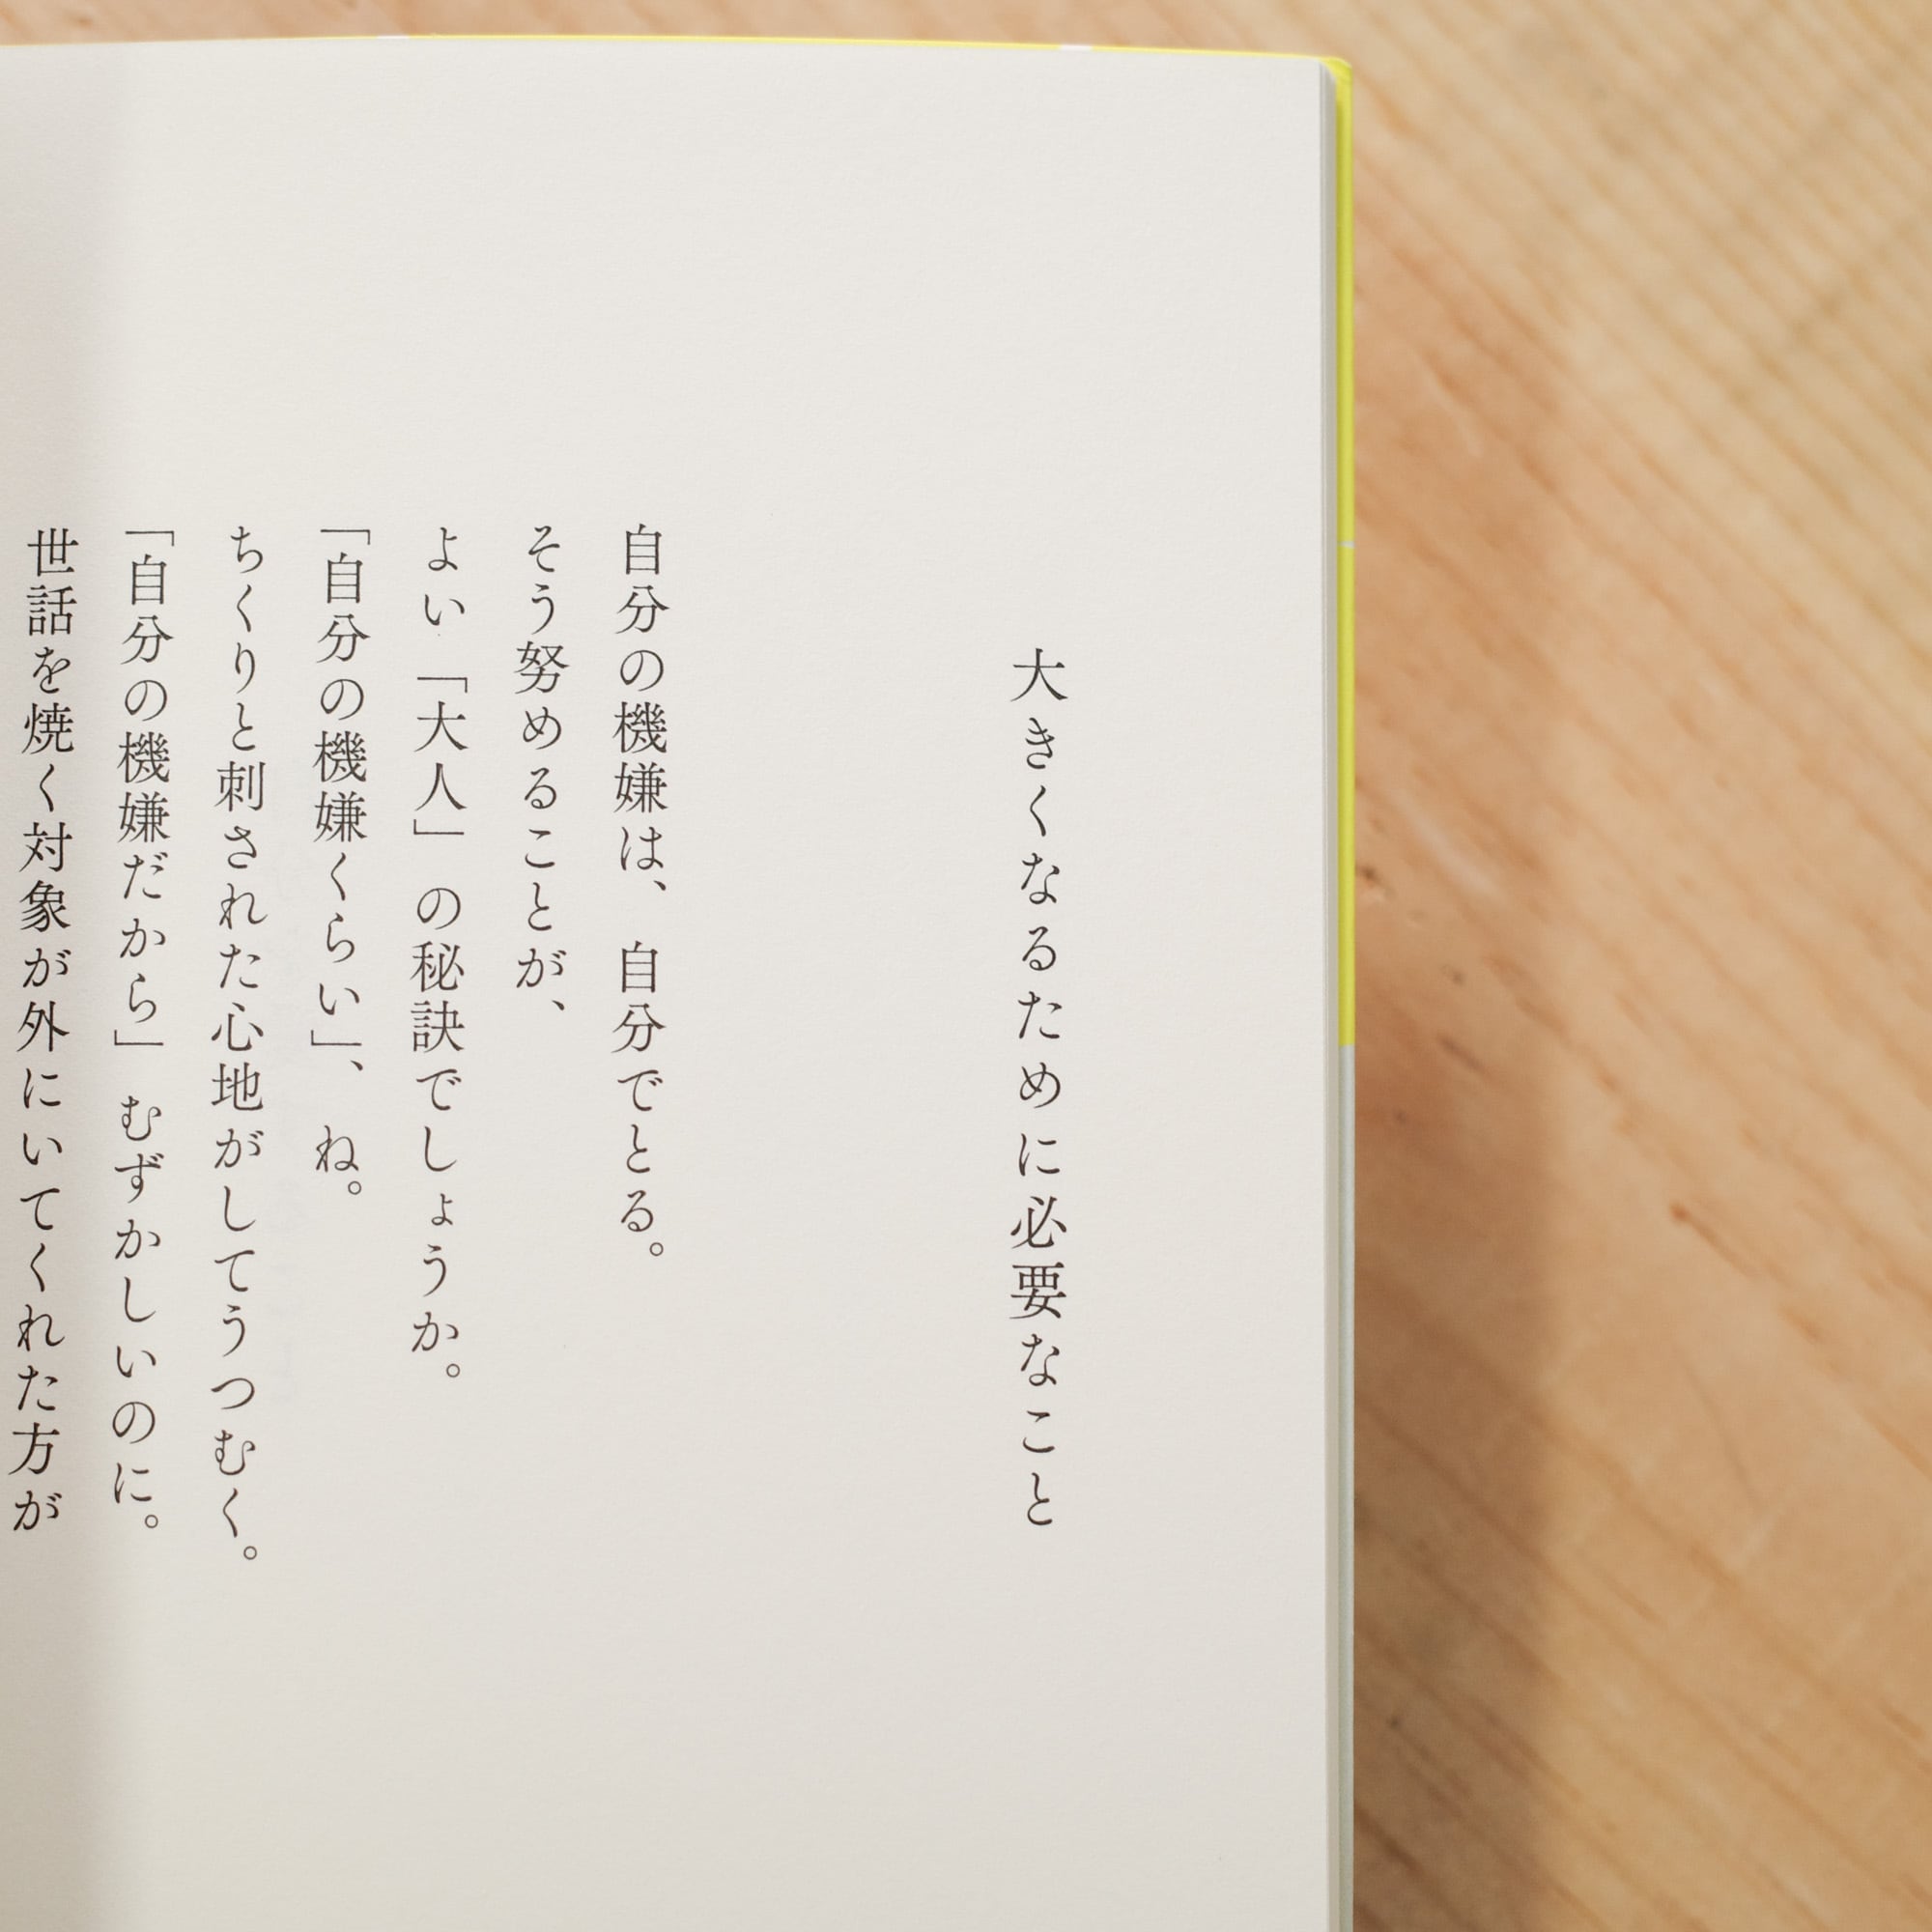 大きくなるために必要なこと
自分の機嫌は、自分でとる。
そう努めることが、
よい「大人」の秘訣でしょうか。
「自分の機嫌くらい」、ね。
ちくりと刺された心地がしてうつむく。
「自分の機嫌だから」むずかしいのに。
世話を焼く対象が外にいてくれた方が